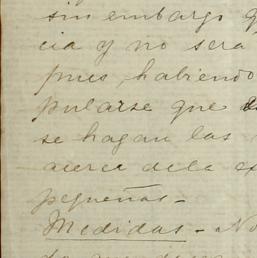 sin embargo q
cia y no sera
pues, habiendo
pularse que
se hagan las
acerca dela ex
pequeñas -
Medidas - No